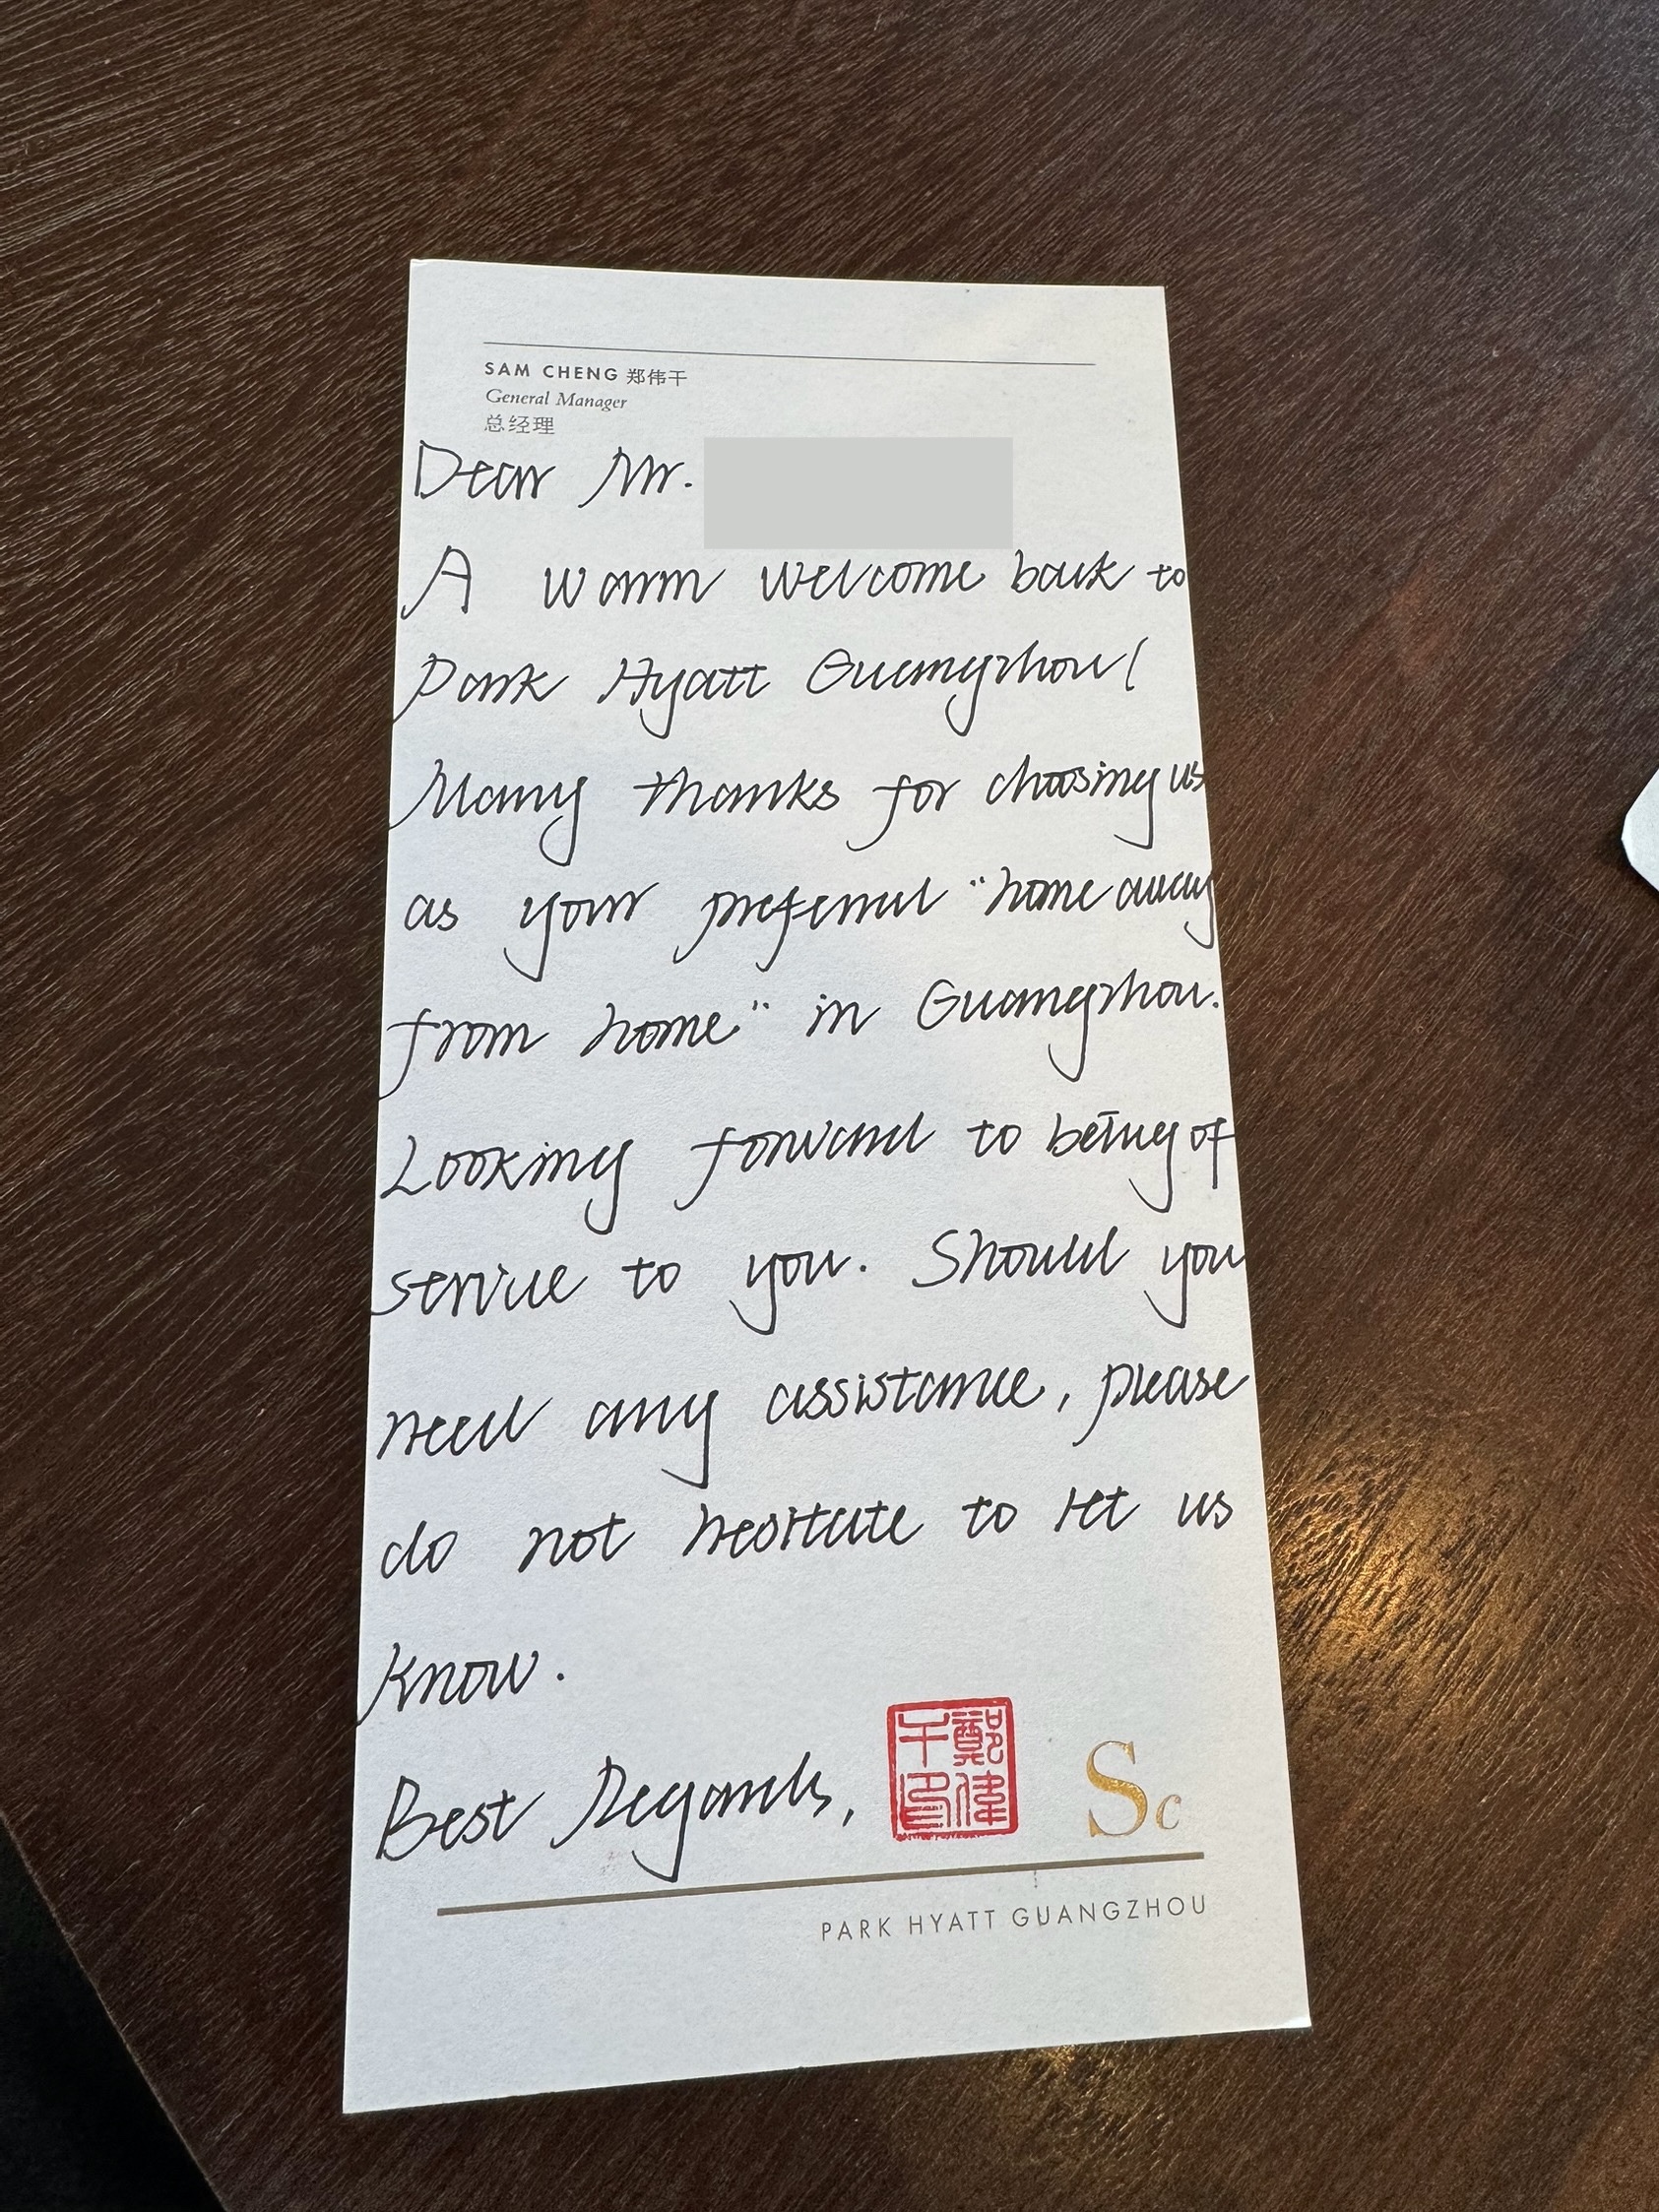 SAM CHENG 郑伟干
General Manager
总经理
Dear Mr.
A warm welcome back to
Park Hyatt Guangzhou!
Many thanks for choosing us
as your preferred "home away
from home" in Guangzhou.
Looking forward to being of
service to you. Should you
need any assistance, please
do not hesitate to let us
know.
Best Regards,
鄭偉干印
Sc
PARK HYATT GUANGZHOU